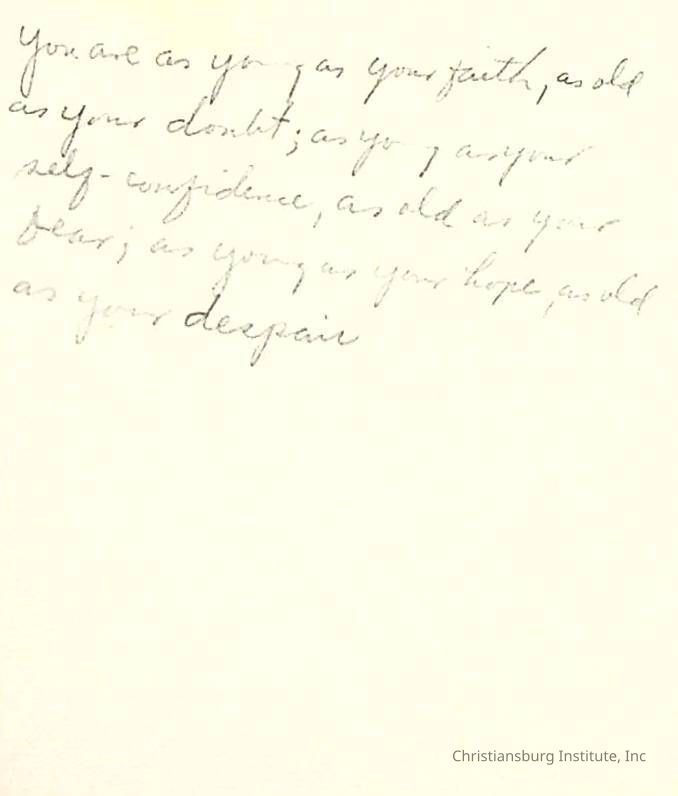 You are as young as your faith, as old
as your doubt; as young as your
self-confidence, as old as your
fear; as young as your hope, as old
as your despair
Christiansburg Institute, Inc